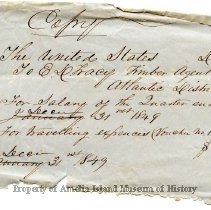 Copy
The United States
To E R Tracy Timber Agent
Atlantic
For Salary of the Quarter
January 31st 1849
For travelling expences
31st 1849
Property of Amelia Island Museum of History